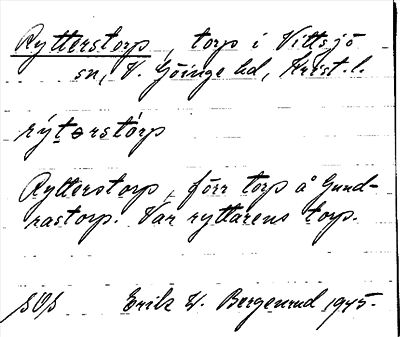 Rytterstorp, torp i Vittsjö
sn, V. Göinge hd, Krist. l.
rýt̬ərstórp
Rytterstorp, förr torp å Gund-
rastorp. Var ryttarens torp.
SOS Erik W. Bergenrud 1945.